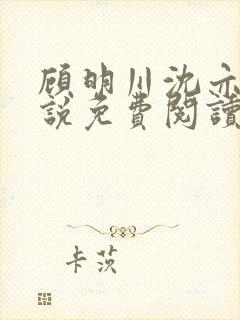 顾明川沈亦
說免費閱讀
卡茨